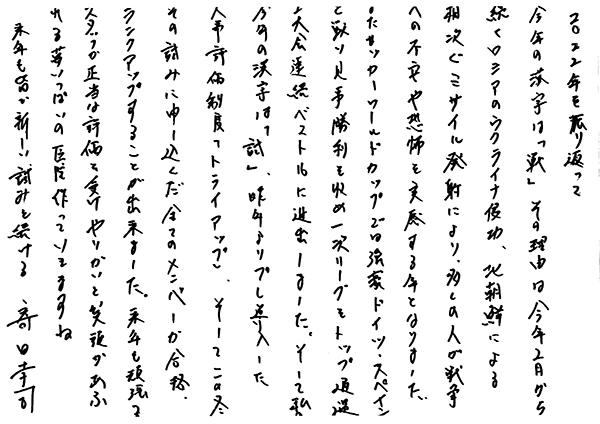 2022年を振り返って
今年の漢字は「戦」その理由は今年2月から
続くロシアのウクライナ侵攻、北朝鮮による
相次ぐミサイル発射により、多くの人が戦争
への不安や恐怖を実感する年となりました。
またサッカーワールドカップでは強豪ドイツ・スペイン
と戦い見事勝利を収め一次リーグをトップ通過
2大会連続ベスト16に進出しました。そして私
今年の漢字は「試」、昨年よりプレ導入した
人事評価制度「トライアップ」、そしてこの冬
その試みに申し込んだ全てのメンバーが合格、
ランクアップすることが出来ました。来年も頑張る
スタッフが正当な評価を受けやりがいと笑顔があふ
れる夢いっぱいの医院作っていきますね
来年も皆が新しい試みを続ける